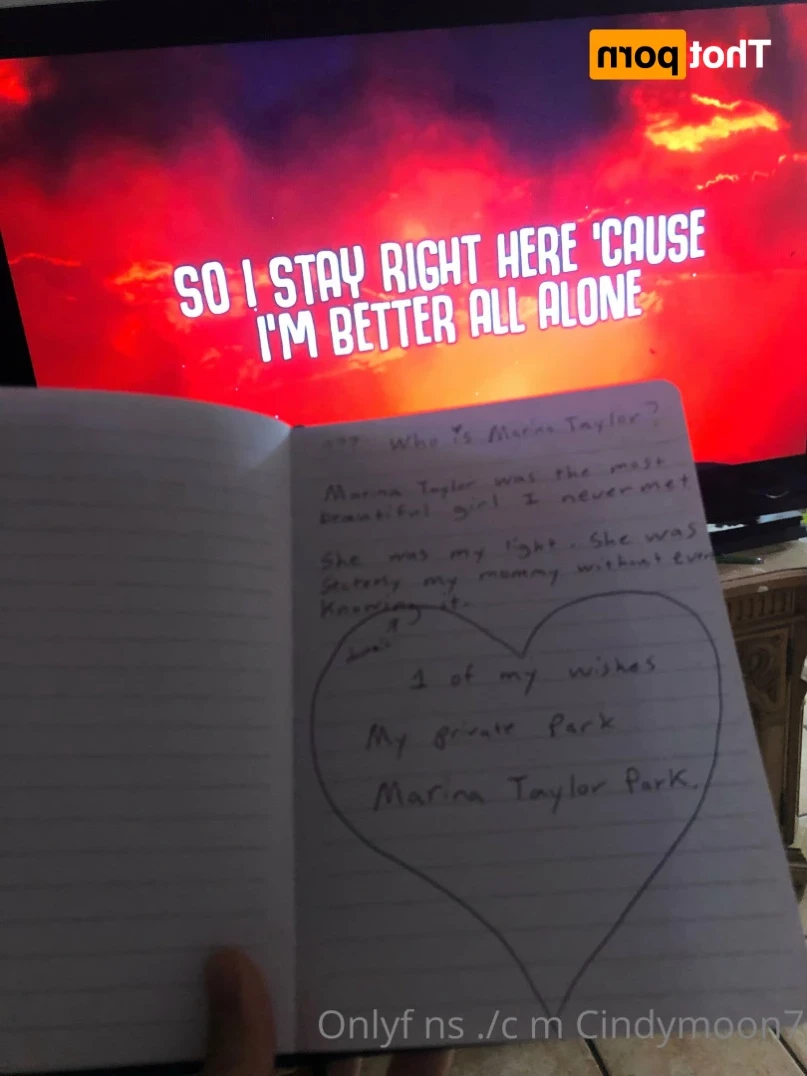 Thot porn
SO I STAY RIGHT HERE 'CAUSE
I'M BETTER ALL ALONE
??? Who is Marina Taylor?
Marina Taylor was the most
beautiful girl I never met
She was my light. She was
my mommy without ever
Knowing it.
1 of my wishes
My private Park
Marina Taylor Park.
Onlyf ns ./c m Cindymoon7